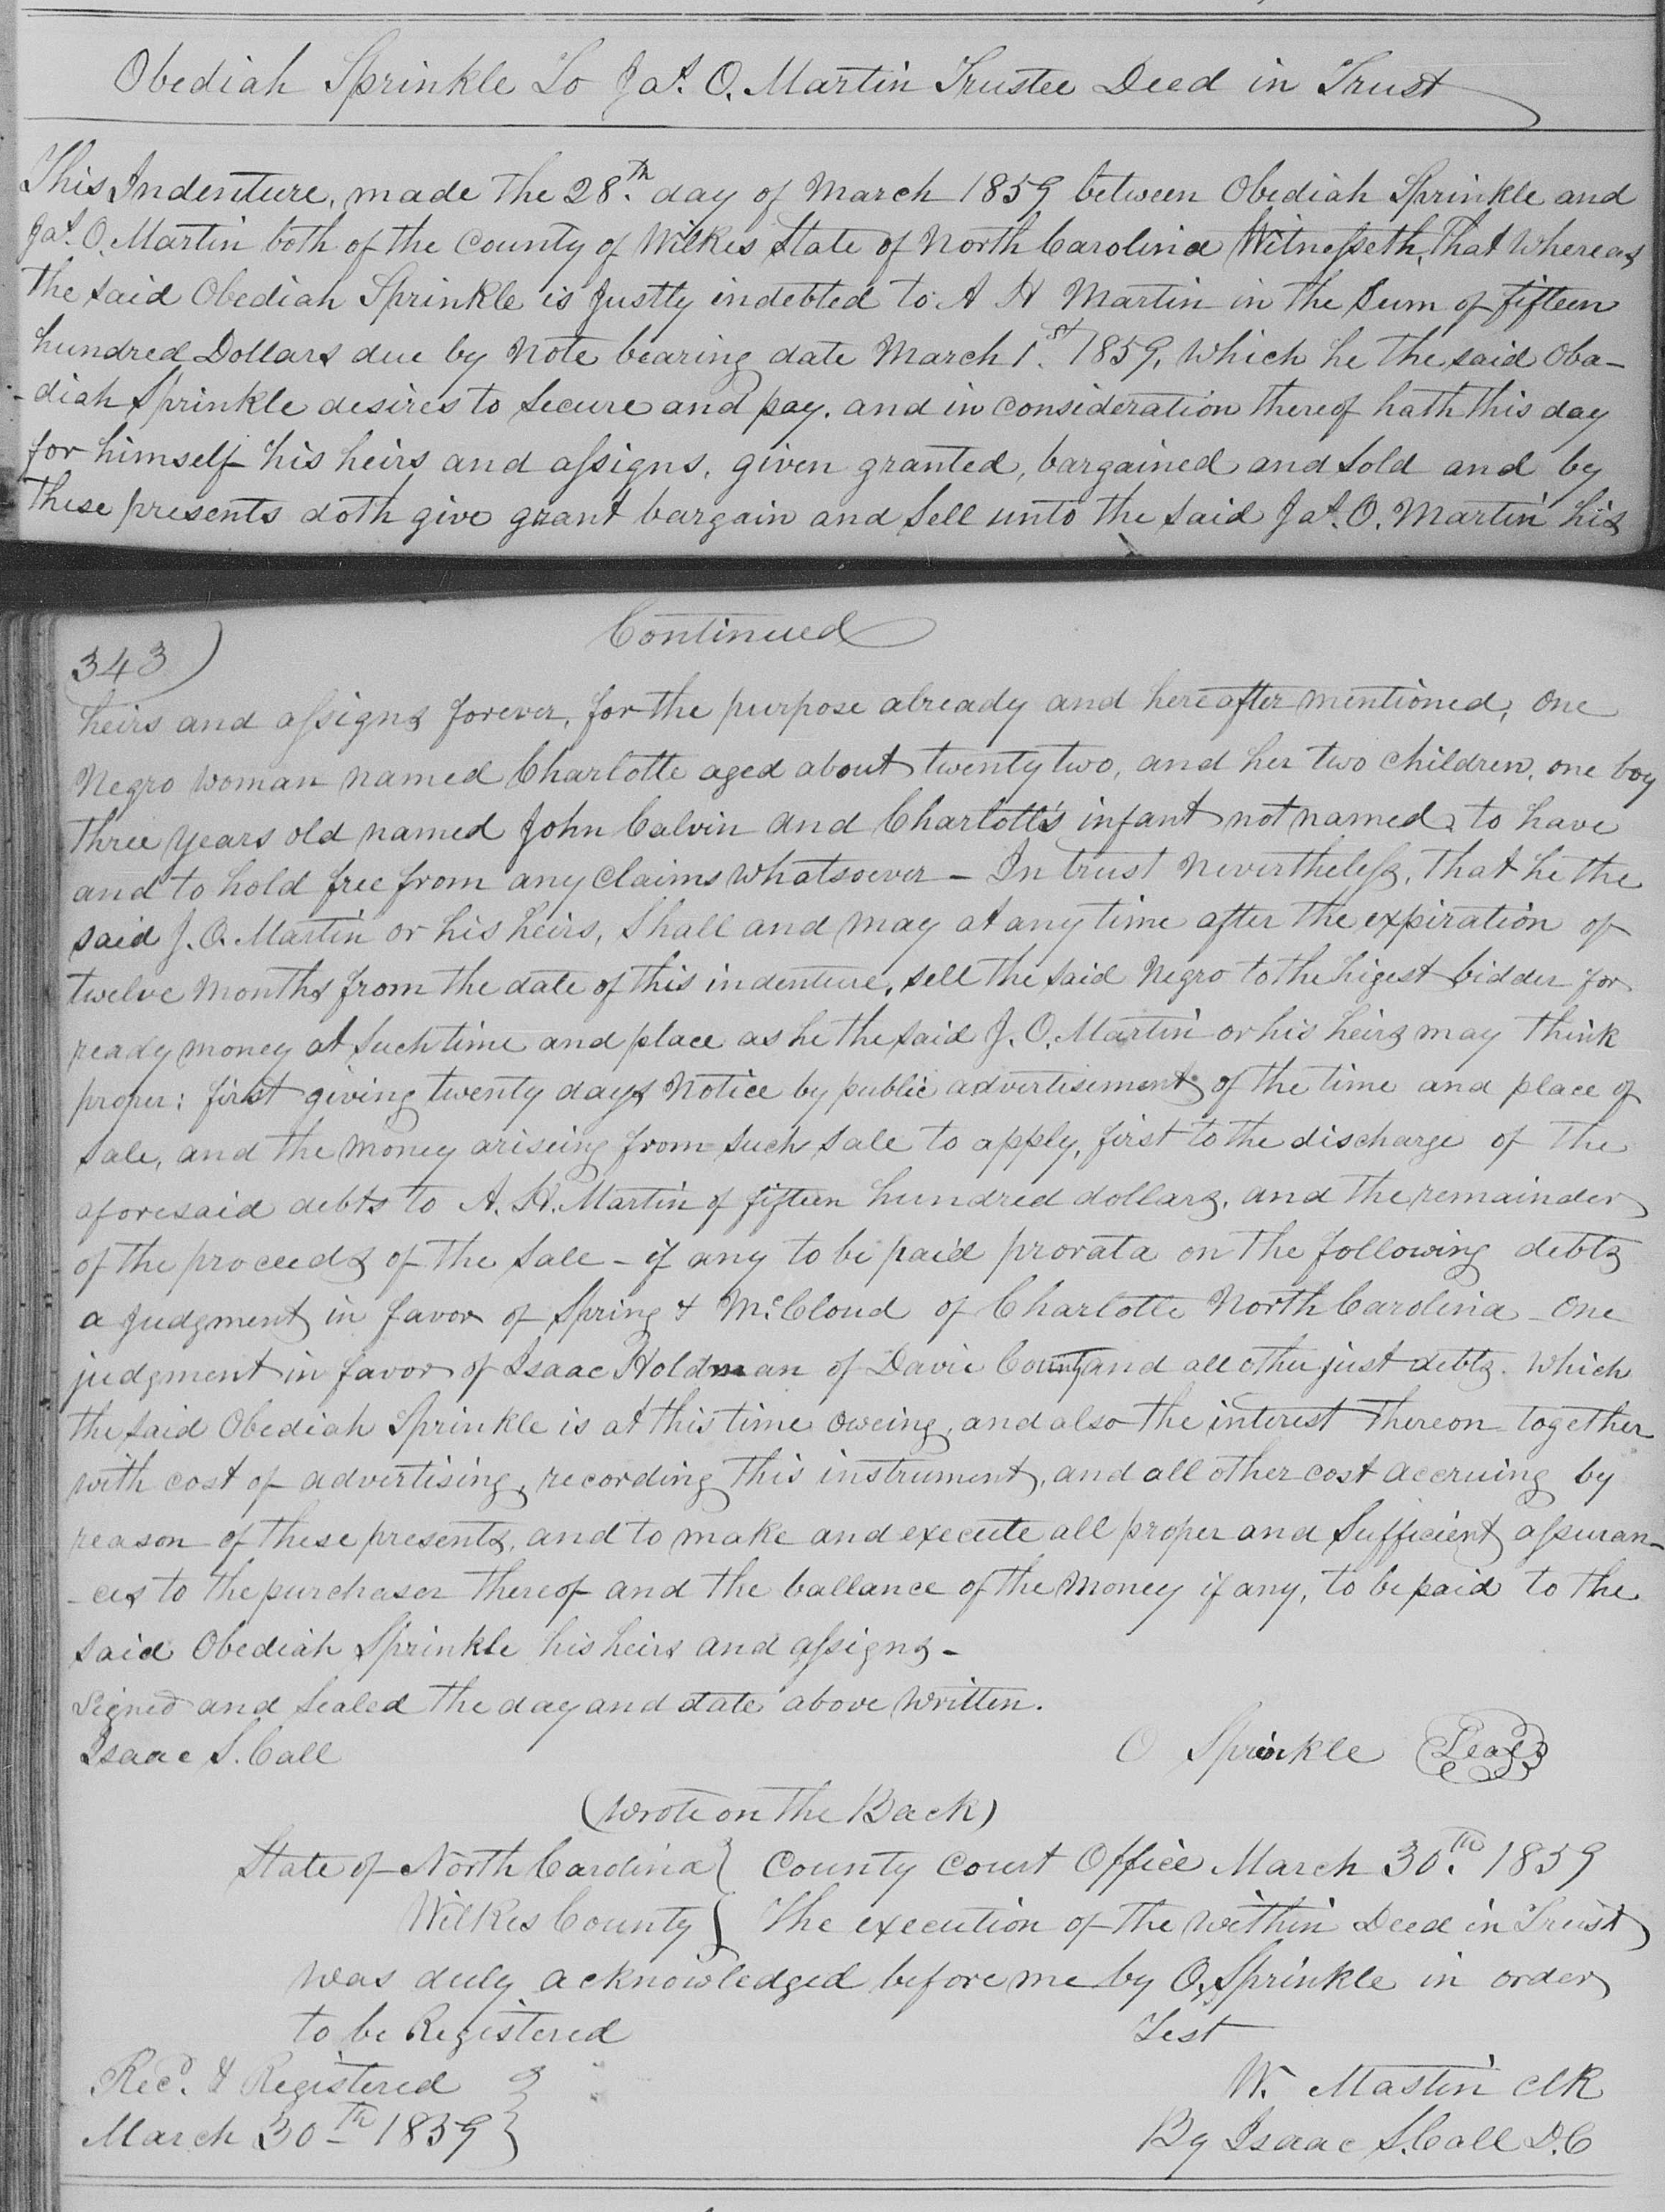 Obediah Sprinkle To Jas. O. Martin Trustee Deed in Trust
This Indenture, made the 28th. day of March 1859 between Obediah Sprinkle and
Jas. O. Martin both of the County of Wilkes State of North Carolina Witnesseth, That Whereas
the said Obediah Sprinkle is Justly indebted to A H Martin in the Sum of fifteen
hundred Dollars due by Note bearing date March 1st. 1859, Which he the said Oba-
-diah Sprinkle desires to Secure and pay. and in consideration thereof hath this day
for himself his heirs and assigns, given granted, bargained and Sold and by
these presents doth give grant bargain and Sell unto the said Jas. O. Martin his
343) Continued
heirs and assigns forever, for the purpose already and hereafter mentioned, One
Negro woman named Charlotte aged about twenty two, and her two children, one boy
three years old named John Calvin and Charlott's infant not named, to have
and to hold free from any claims whatsoever - In trust Nevertheless, That he the
said J. O. Martin or his heirs, Shall and may at any time after the expiration of
twelve Months from the date of this indenture, sell the said Negro to the higest bidder for
ready money at Such time and place as he the said J. O. Martin or his heirs may think
proper: first giving twenty days Notice by public advertisement of the time and place of
Sale, and the Money ariseing from Such Sale to apply, first to the discharge of the
aforesaid debts to A. H. Martin of fifteen hundred dollars, and the remainder
of the proceeds of the Sale - if any to be paid prorata on the following debts
a Judgment in favor of Spring & McCloud of Charlotte North Carolina - One
judgment in favor of Isaac Holdman of Davie County and all other just debts. Which
the said Obediah Sprinkle is at this time oweing, and also the interest thereon together
with cost of advertising, recording this instrument, and all other cost accruing by
reason of these presents, and to make and execute all proper and Sufficient assuran-
-ces to the purchaser thereof and the ballance of the Money if any, to be paid to the
said Obediah Sprinkle his heirs and assigns -
Signed and Sealed the day and date above written.
Isaac S. Call O Sprinkle Seal
(Wrote on the Back)
State of North Carolina } County Court Office March 30th. 1859
Wilkes County } The execution of the within Deed in Trust
was duly acknowledged before me by O. Sprinkle in order
to be Registered Test
Recd. & Registered } W. Mastin Clk
March 30th 1859 } By Isaac S. Call D.C